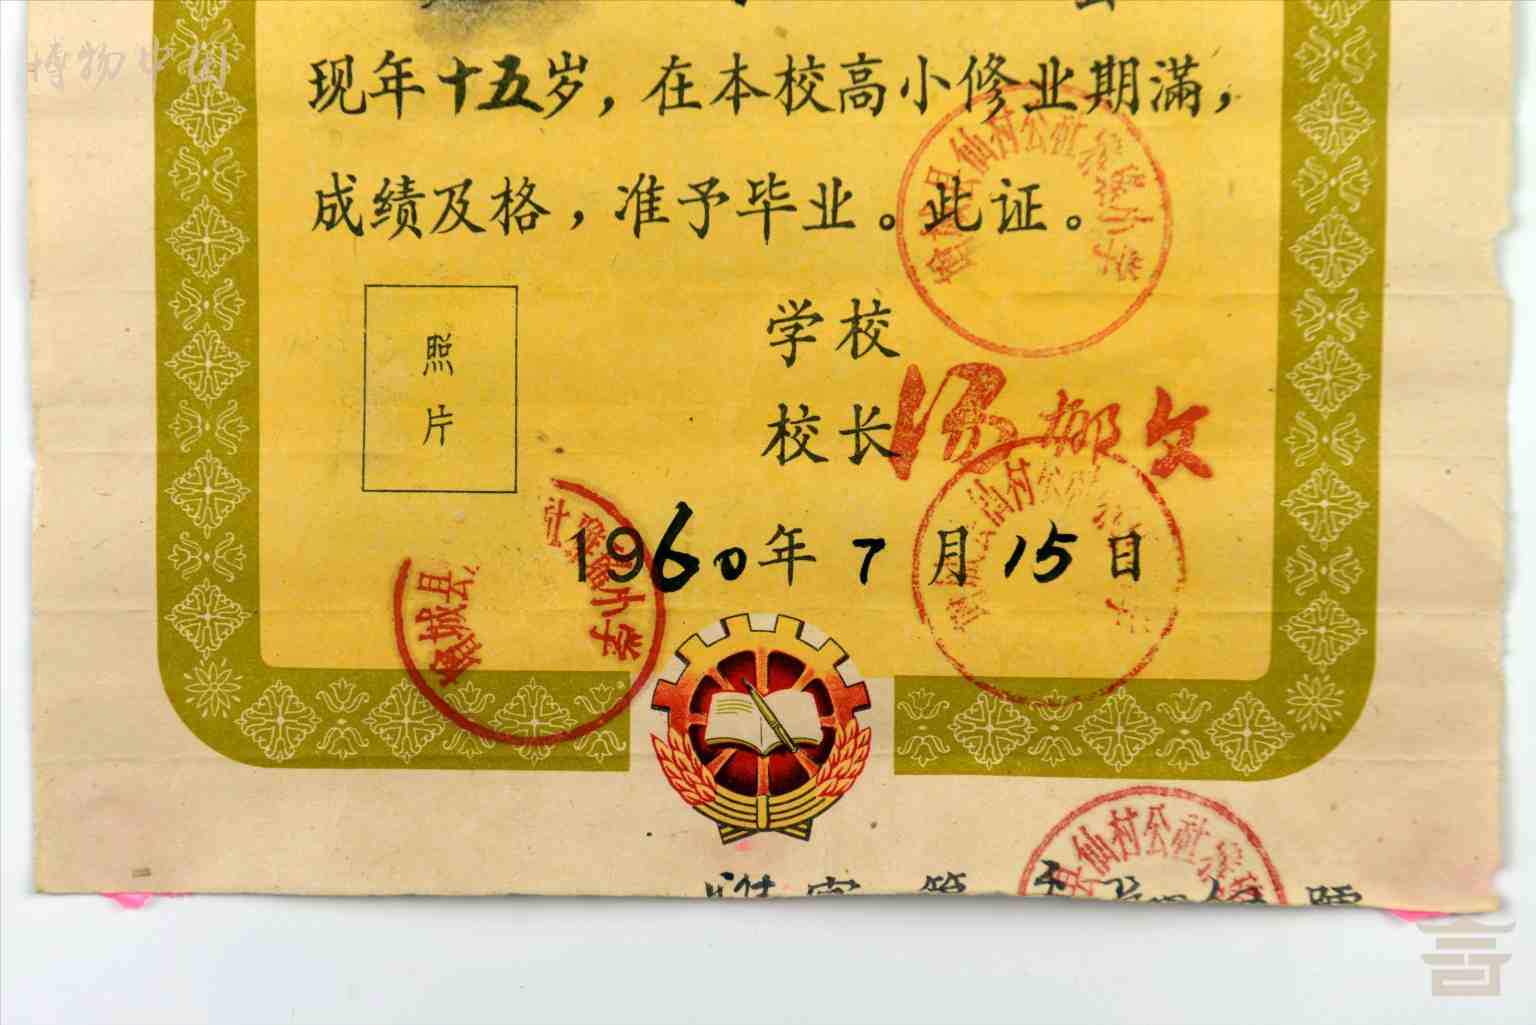 博物中国
现年十五岁，在本校高小修业期满，
成绩及格，准予毕业。此证。
学校
照片
校长
汤柳文
1960年7月15日
县仙村公社
小学
仙村公社
城县
社
小学
县仙村公社